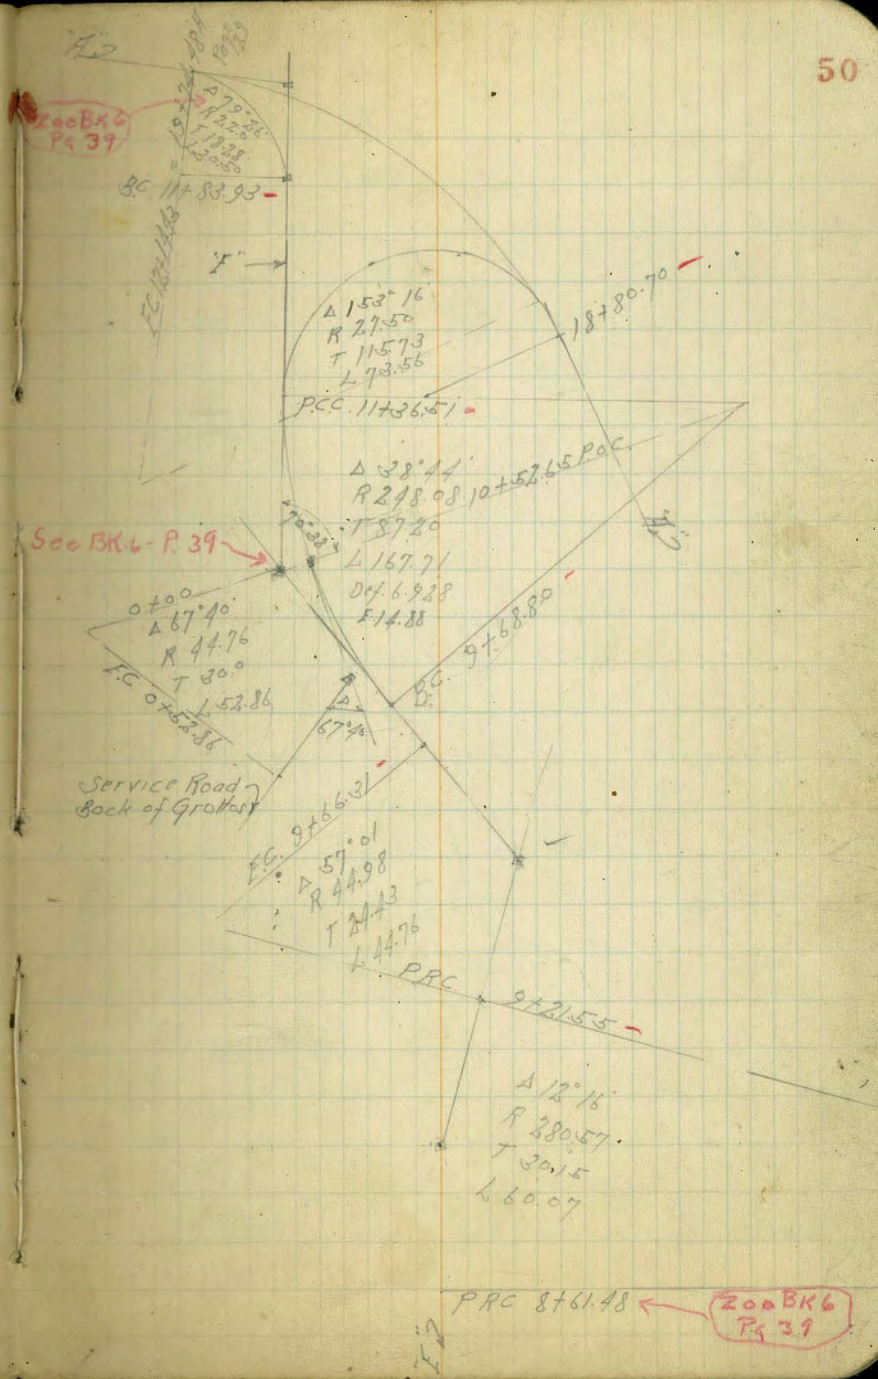 50
"A"
Zoo BK 6
Pg 39
Δ 79°26'
R 22.0
T 18.28
L 30.50
B.C. 11+83.93
"F"
Δ 153°16'
R 27.50
T 115.73
L 73.56
18+80.70
P.C.C. 11+36.51
Δ 38°44'
R 248.08
T 87.20
L 167.71
Def. 6.928
E 14.88
10+52.65 P.O.C.
"A"
See BK.6 - P. 39
0+00
Δ 67°40'
R 44.76
T 30.0
L 52.86
E.C. 0+52.86
B.C. 9+68.80
Δ
67°40'
Service Road
Back of Grottos
E.C. 9+66.31
Δ 57°01
R 44.98
T 24.43
L 44.76
PRC 9+21.55
Δ 12°16'
R 280.57
T 30.15
L 60.07
PRC 8+61.48
Zoo BK 6
Pg 39
"F"